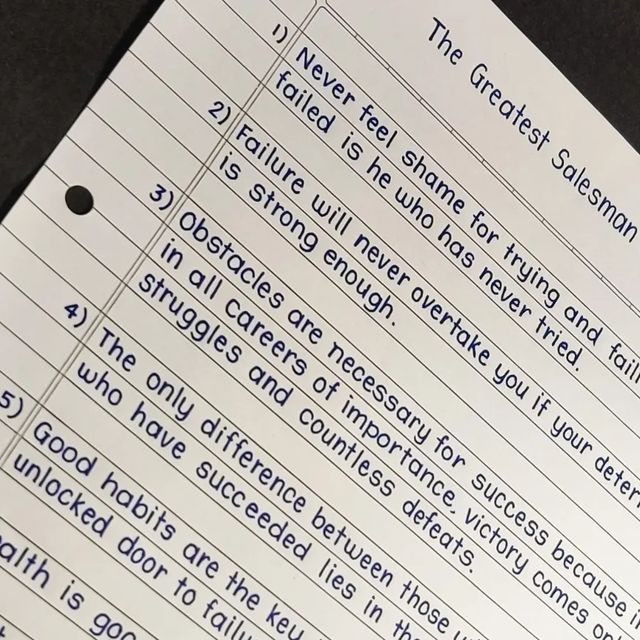 The Greatest Salesman
1) Never feel shame for trying and
failed is he who has never tried.
2) Failure will never overtake you if your
is strong enough.
3) Obstacles are necessary for success because
in all careers of importance, victory comes
struggles and countless defeats.
4) The only difference between those
who have succeeded lies in the
5) Good habits are the key
unlocked door to
is